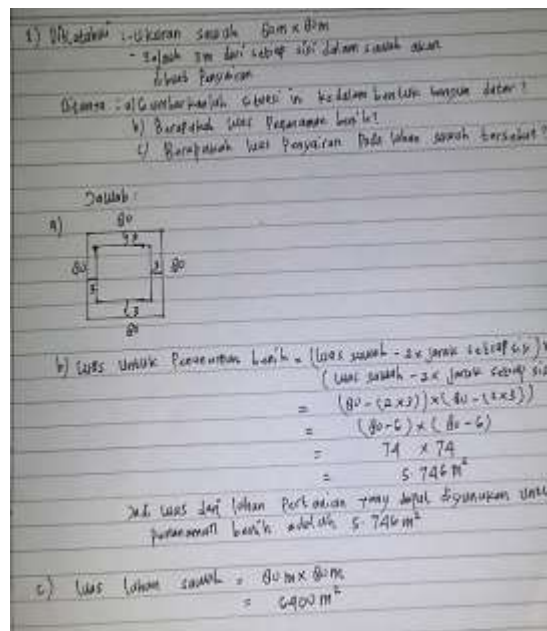 1) Diketahui : - Ukuran sawah 80m x 80m
- Sejauh 3m dari setiap sisi dalam sawah akan
dibuat Pengairan
Ditanya : a) Gambarkanlah situasi ini kedalam bentuk bangun datar?
b) Berapakah luas Penanaman benih?
c) Berapakah luas Pengairan Pada lahan sawah tersebut?
Jawab :
a)
80
3
80 3 3 80
3
80
b) Luas untuk Penanaman benih = (luas sawah - 2x jarak setiap sisi) x
(luas sawah - 2x jarak setiap sisi
= (80 - (2x3)) x (80 - (2x3))
= (80-6) x (80-6)
= 74 x 74
= 5.746 m²
Jadi luas dari lahan Pertanian yang dapat digunakan untuk
penanaman benih adalah 5.746 m²
c) Luas lahan sawah = 80 m x 80 m
= 6400 m²